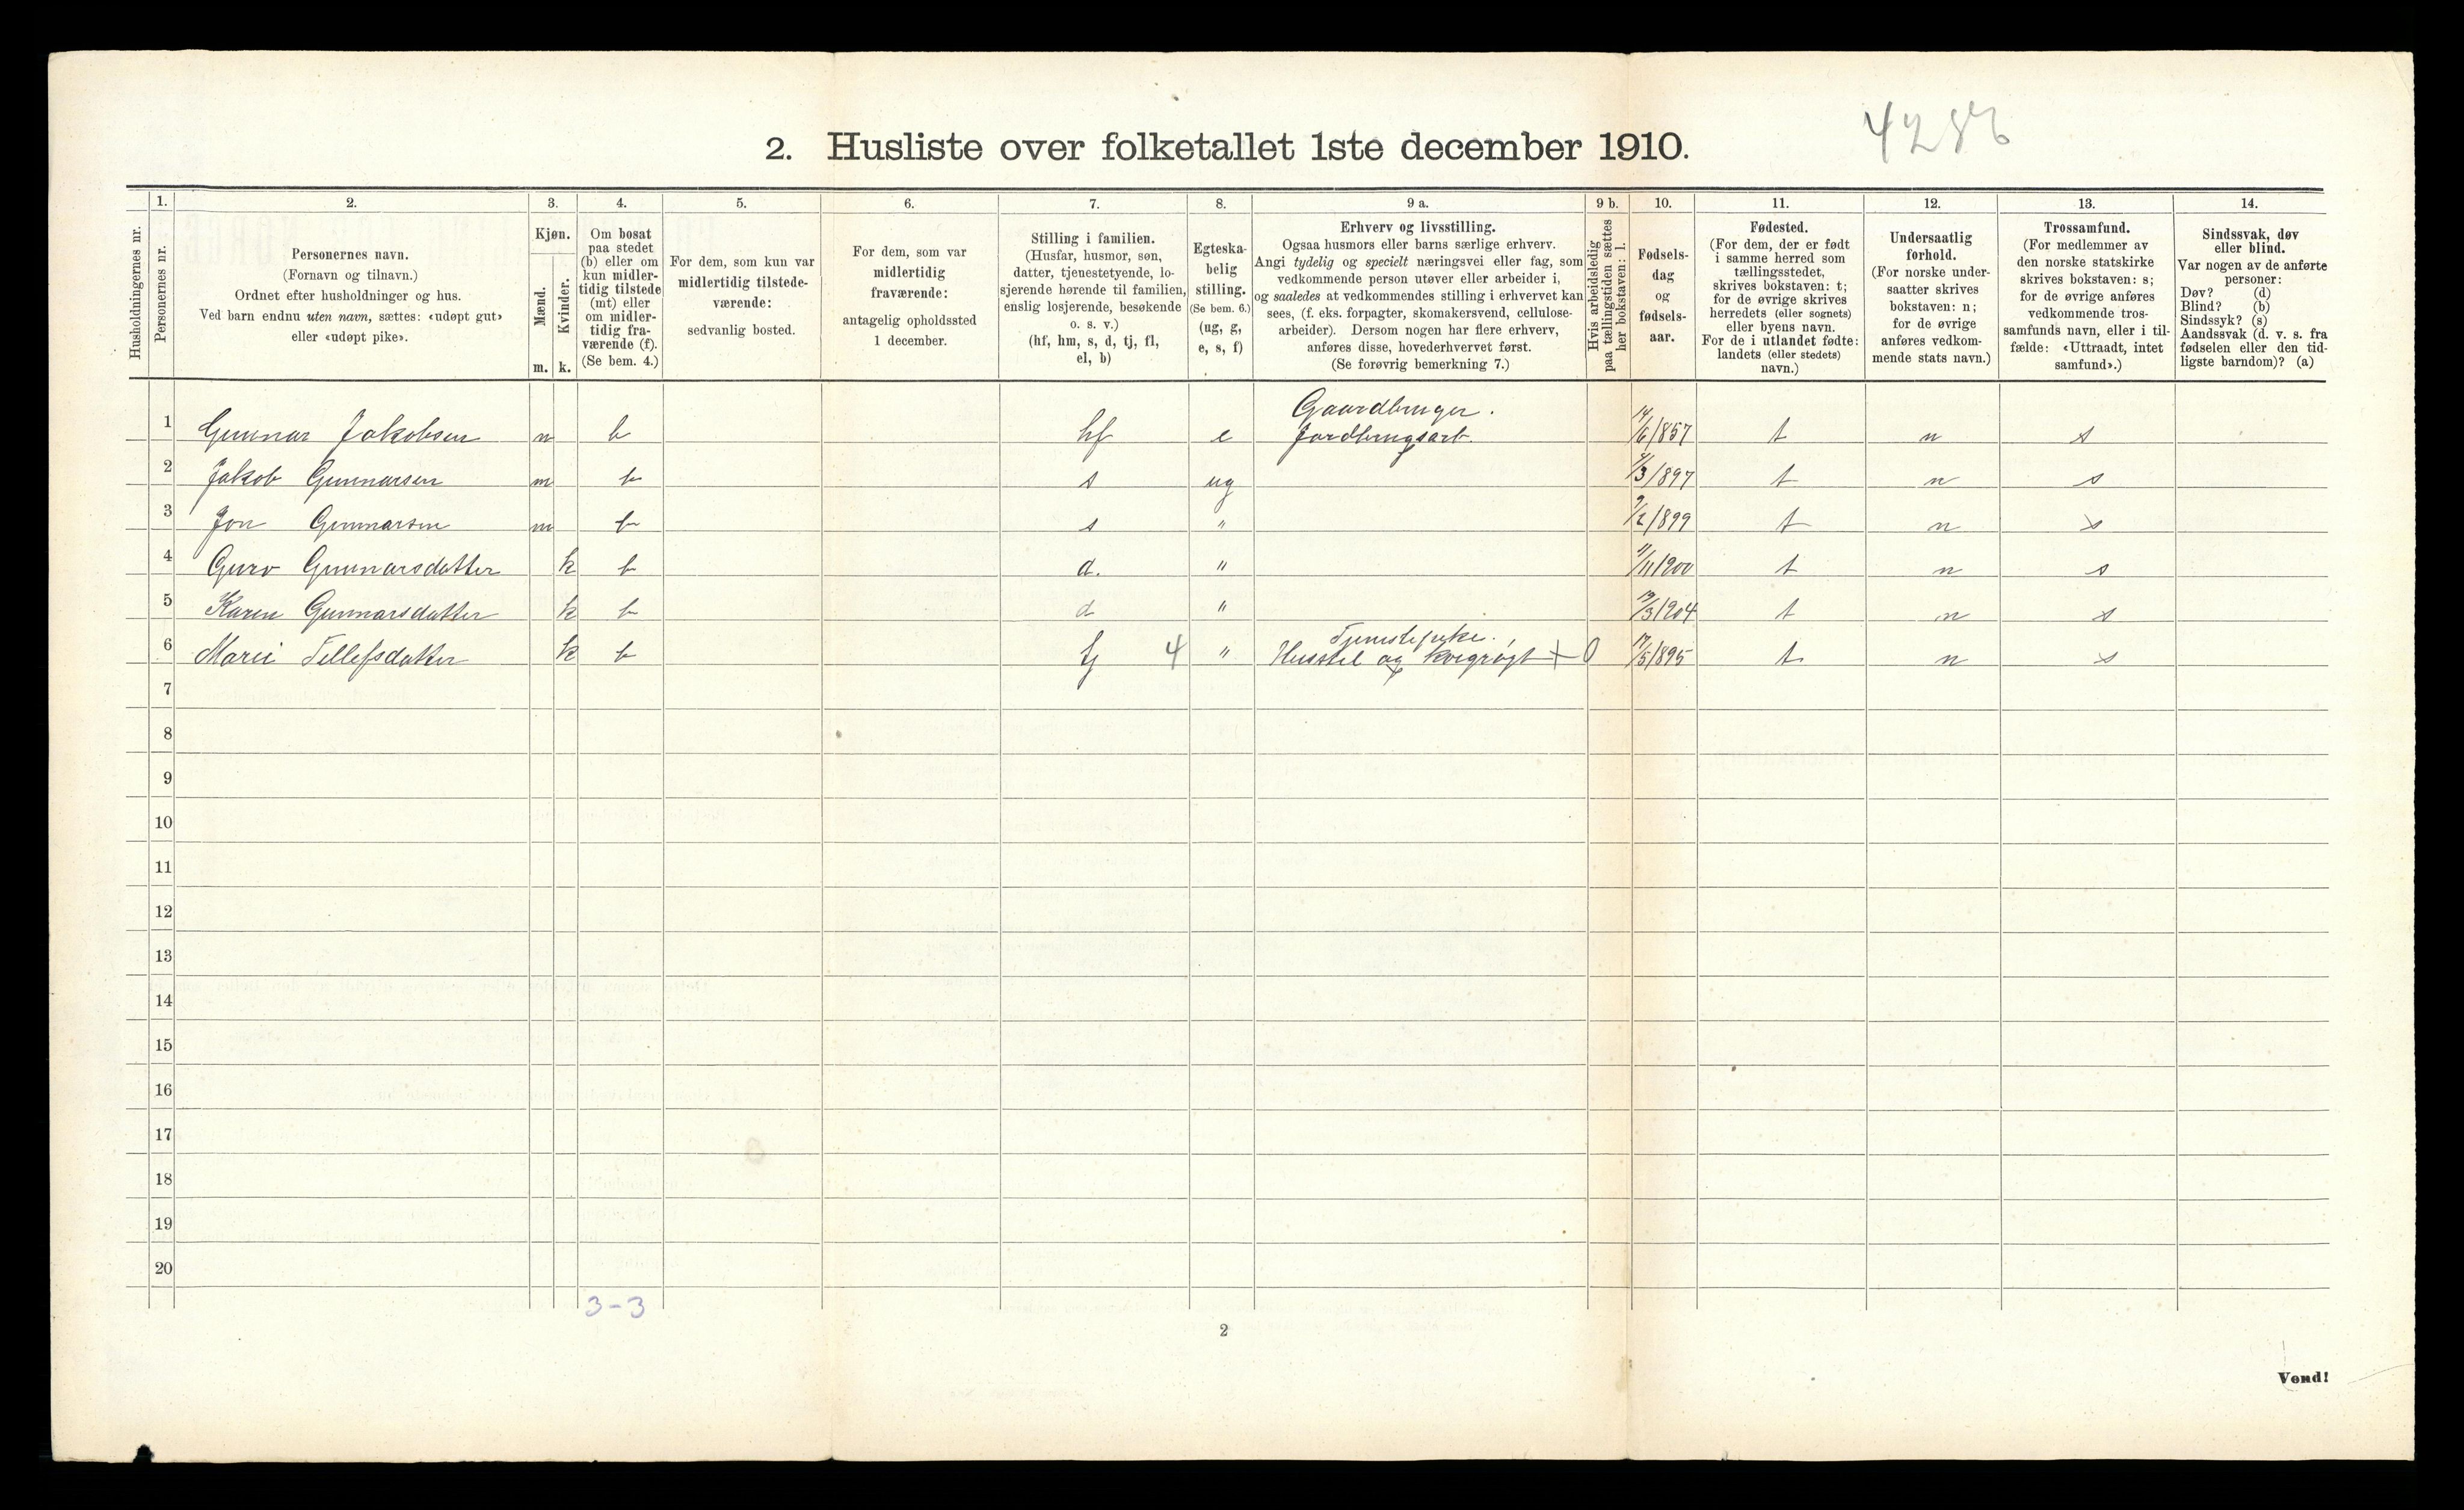 2. Husliste over folketallet 1ste december 1910.
Husholdningernes nr.
1.
Personernes nr.
2.
Personernes navn.
(Fornavn og tilnavn.)
Ordnet efter husholdninger og hus.
Ved barn endnu uten navn, sættes: «udøpt gut»
eller «udøpt pike».
3.
Kjøn.
Mænd.
m.
Kvinder.
k.
4.
Om bosat
paa stedet
(b) eller om
kun midler-
tidig tilstede
(mt) eller
om midler-
tidig fra-
værende (f).
(Se bem. 4.)
5.
For dem, som kun var
midlertidig tilstede-
værende:
sedvanlig bosted.
6.
For dem, som var
midlertidig
fraværende:
antagelig opholdssted
1 december.
7.
Stilling i familien.
(Husfar, husmor, søn,
datter, tjenestetyende, lo-
sjerende hørende til familien,
enslig losjerende, besøkende
o. s. v.)
(hf, hm, s, d, tj, fl,
el, b)
8.
Egteska-
belig
stilling.
(Se bem. 6.)
(ug, g,
e, s, f)
9 a.
Erhverv og livsstilling.
Ogsaa husmors eller barns særlige erhverv.
Angi tydelig og specielt næringsvei eller fag, som
vedkommende person utøver eller arbeider i,
og saaledes at vedkommendes stilling i erhvervet kan
sees, (f. eks. forpagter, skomakersvend, cellulose-
arbeider). Dersom nogen har flere erhverv,
anføres disse, hovederhvervet først.
(Se forøvrig bemerkning 7.)
9 b.
Hvis arbeidsledig
paa tællingstiden sættes
her bokstaven: l.
10.
Fødsels-
dag
og
fødsels-
aar.
11.
Fødested.
(For dem, der er født
i samme herred som
tællingsstedet,
skrives bokstaven: t;
for de øvrige skrives
herredets (eller sognets)
eller byens navn.
For de i utlandet fødte:
landets (eller stedets)
navn.)
12.
Undersaatlig
forhold.
(For norske under-
saatter skrives
bokstaven: n;
for de øvrige
anføres vedkom-
mende stats navn.)
13.
Trossamfund.
(For medlemmer av
den norske statskirke
skrives bokstaven: s;
for de øvrige anføres
vedkommende tros-
samfunds navn, eller i til-
fælde: «Uttraadt, intet
samfund».)
14.
Sindssvak, døv
eller blind.
Var nogen av de anførte
personer:
Døv? (d)
Blind? (b)
Sindssyk? (s)
Aandssvak (d. v. s. fra
fødselen eller den tid-
ligste barndom)? (a)
Gaardbruger.
1 Gunnar Jakobsen m b hf e Jordbrugsarb. 14/6/857 t n s
2 Jakob Gunnarsen m b s ug /3/897 t n s
3 Jon Gunnarsen m b s " /899 t n s
4 Guro Gunnarsdatter k b d. " /11 1900 t n s
5 Karen Gunnarsdatter k b d " 19/3 1904 t n s
Tjenestepike.
6 Marei Tellefsdatter k b tj 4 " Husstel og kregrøgt + 0 17/5/895 t n s
7
8
9
10
11
12
13
14
15
16
17
18
19
20
3-3
2
Vend!